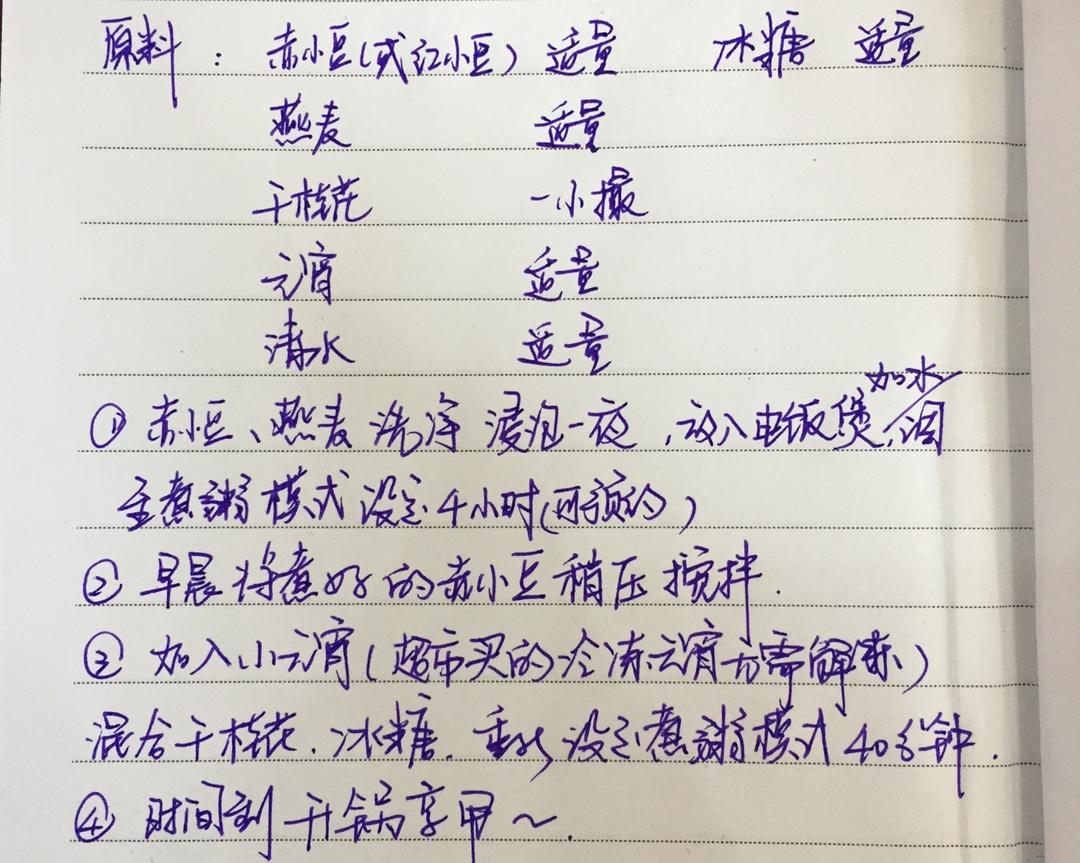 原料：赤小豆(或红小豆) 适量 冰糖 适量
燕麦 适量
干桂花 一小撮
元宵 适量
清水 适量
加水
①赤小豆、燕麦洗净浸泡一夜，放入电饭煲，调
至煮粥模式设定4小时(可预约)
②早晨将煮好的赤小豆稍压搅拌.
③加入小元宵(超市买的冷冻元宵无需解冻)
混合干桂花.冰糖.重新设定煮粥模式40分钟.
④时间到开锅享用~.